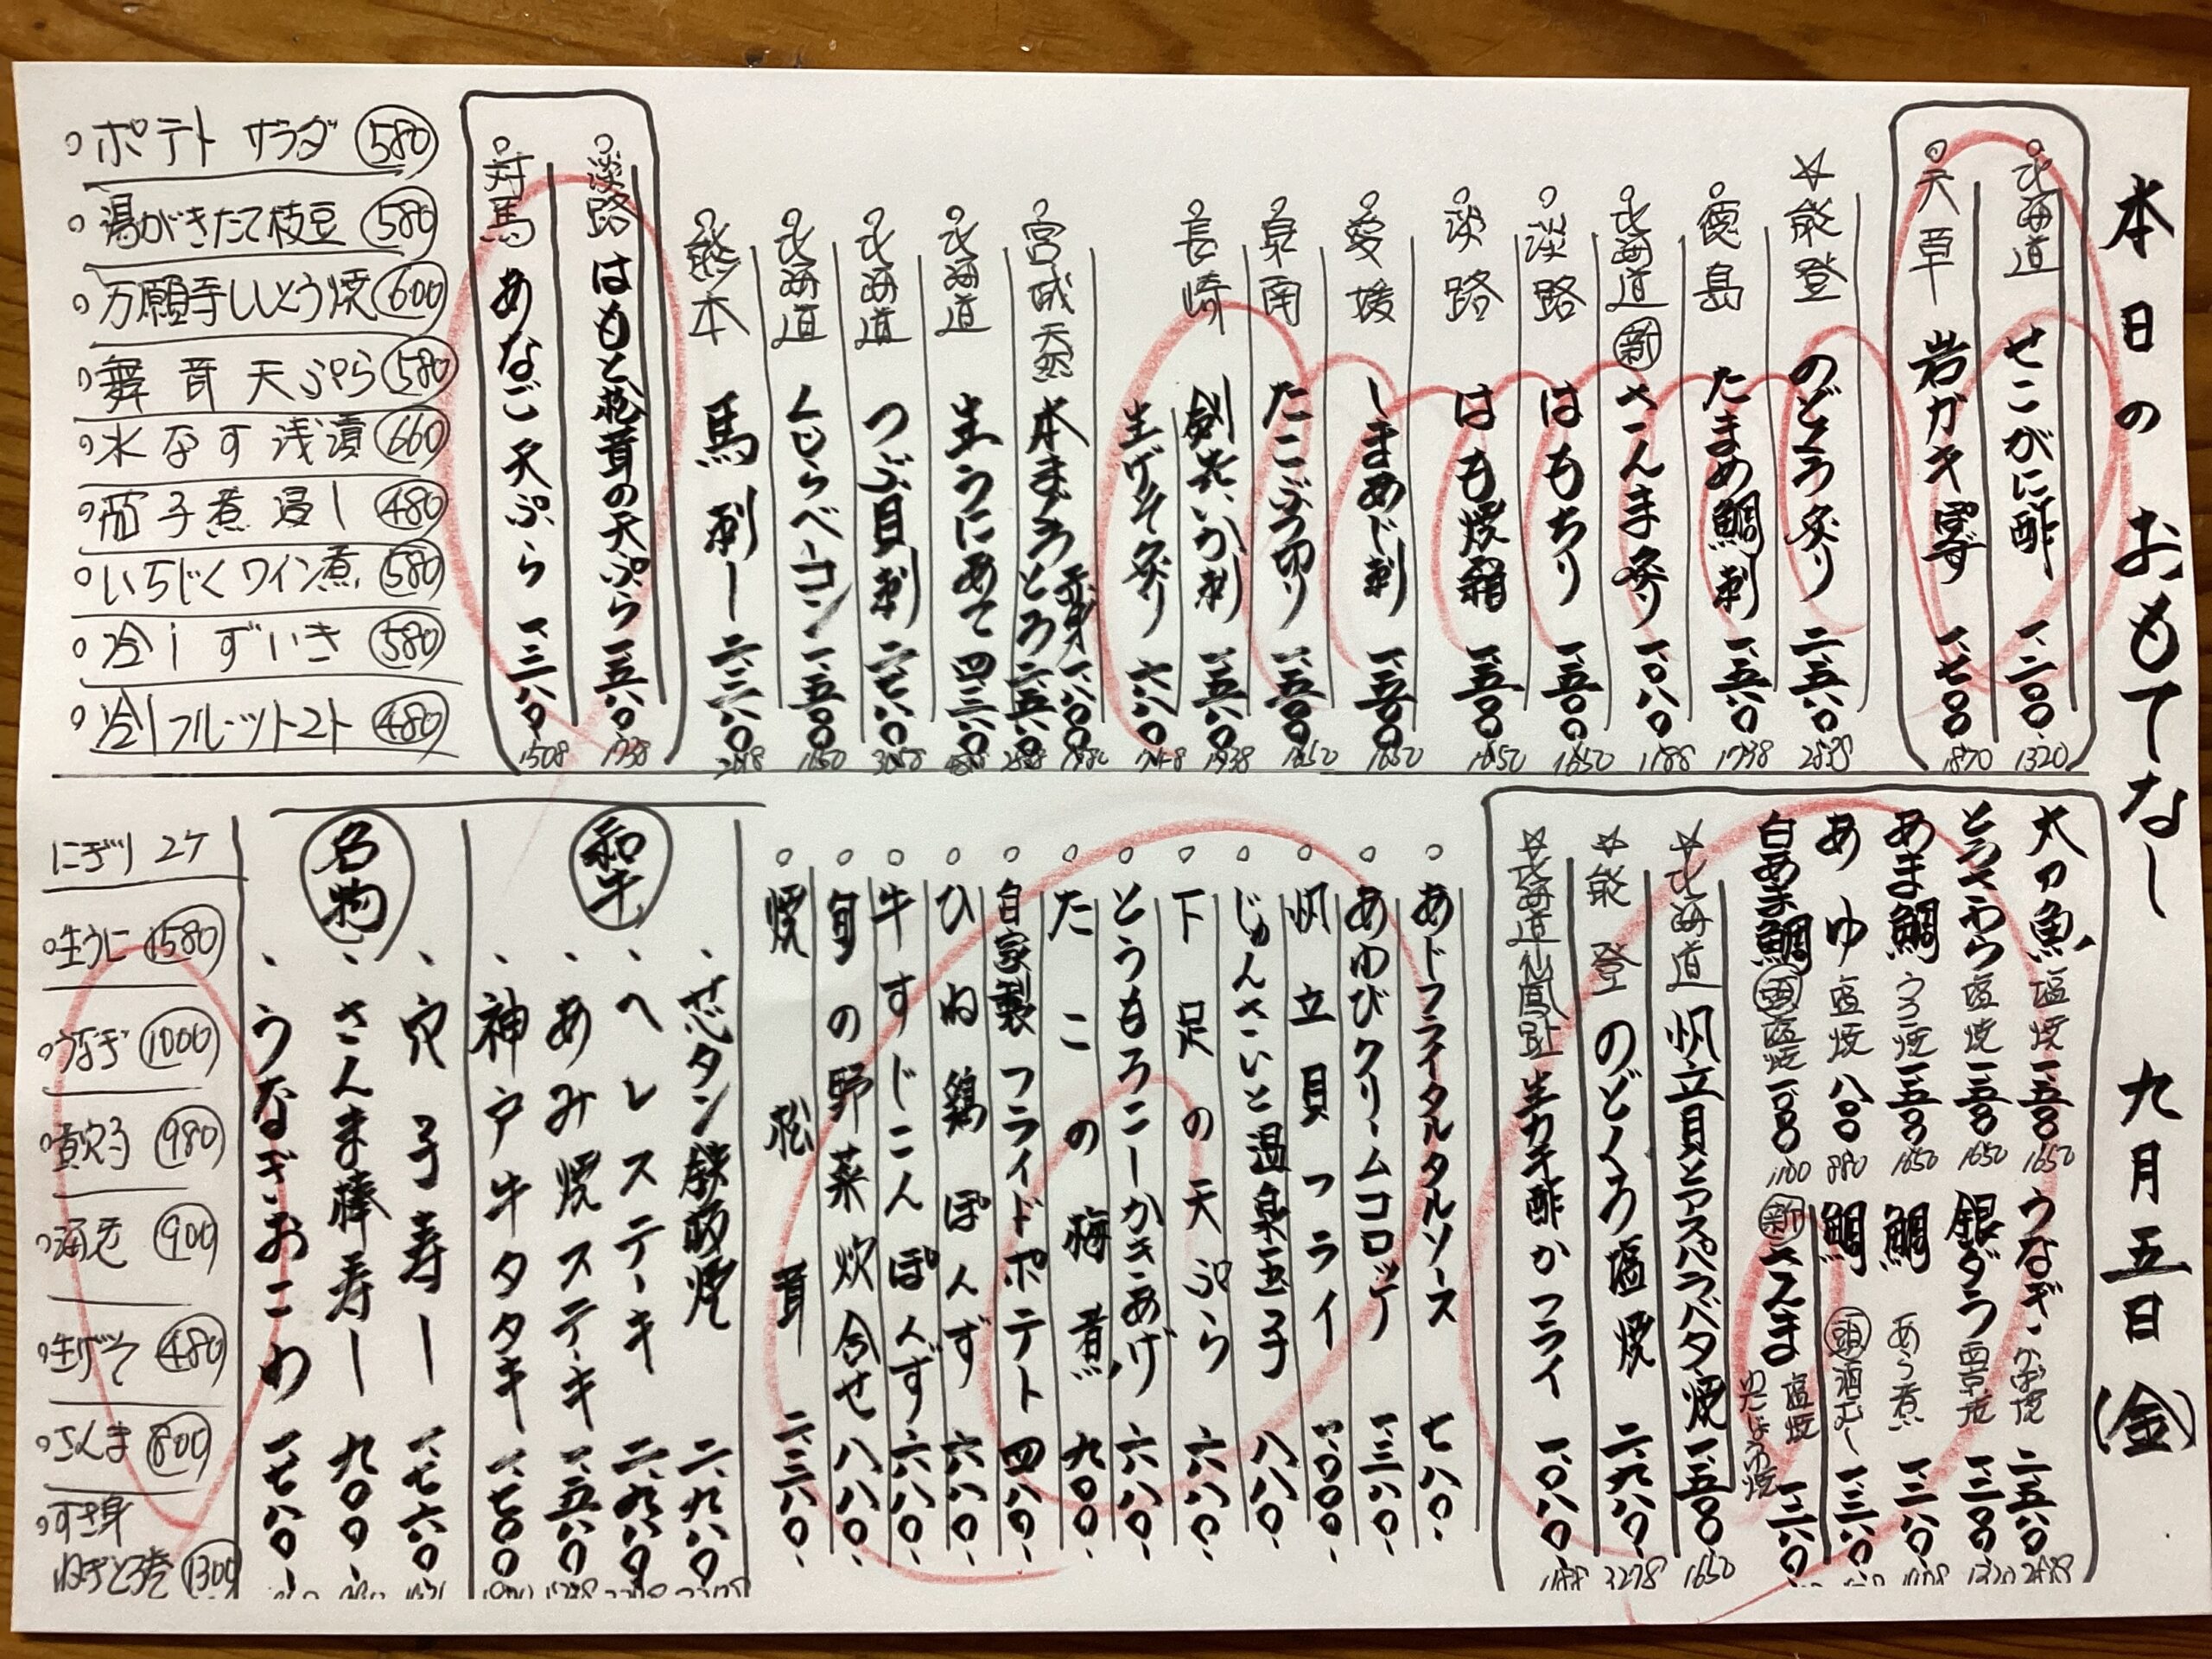 本日のおもてなし 九月五日(金)
北海道 せこがに酢 一、二〇〇 1320
天草 岩ガキ 一、七〇〇 1870
能登 のどくろ炙り 二、五八〇 2838
徳島 たまめ鯛刺 一、五八〇 1738
北海道 新 さんま炙り 一、〇八〇 1188
淡路 はもちり 一、五〇〇 1650
淡路 はも焼霜 一、五〇〇 1650
愛媛 しまあじ刺 一、五〇〇 1650
泉南 たこぶつ切り 一、五〇〇 1650
長崎 剣先いか刺 一、五八〇 1738
生げそ炙り 六八〇 748
宮城 天然 本まぐろ 赤身 一、八〇〇 1980
とろ 二、五八〇 2838
北海道 生うにあて 四、三八〇
北海道 つぶ貝刺 二、七八〇 3058
北海道 くじらベーコン 一、五〇〇 1650
熊本 馬刺し 二、三八〇 2618
淡路 はもと松茸の天ぷら 一、五八〇 1738
対馬 あなご天ぷら 一、三八〇 1508
ポテトサラダ 580
湯がきたて枝豆 580
万願寺ししとう焼 600
舞茸天ぷら 580
水なす浅漬 660
茄子煮浸し 480
いちじくワイン煮 580
冷しずいき 580
冷しフルーツトマト 480
太刀魚 塩焼 一、五〇〇 1650
とろさわら 塩焼 一、五〇〇 1650
あま鯛 うろこ焼 一、五〇〇 1650
あゆ 塩焼 八〇〇 880
白あま鯛 頭 塩焼 一、〇〇〇 1100
うなぎ かば焼 二、五八〇 2838
銀ダラ 西京焼 一、二〇〇 1320
鯛 あら煮 一、三八〇
鯛 頭 酒むし 一、三八〇
新 さんま 塩焼 ゆたんぽ焼 一、三八〇
北海道 帆立貝とアスパラバタ焼 一、五〇〇 1650
能登 のどくろ塩焼 二、九八〇 3278
北海道仙鳳趾 生カキ酢かフライ 一、〇八〇 1188
あじフライタルタルソース 七八〇
あゆびクリームコロッケ 一、三八〇
帆立貝フライ 一、〇〇〇
じゅんさいと温泉玉子 八八〇
下足の天ぷら 六八〇
とうもろこしかきあげ 六八〇
たこの梅煮 九〇〇
自家製フライドポテト 四八〇
ひね鶏ぽんず 六八〇
牛すじこんぽんず 六八〇
旬の野菜炊合せ 八八〇
焼松茸 二、三八〇
和牛
芯タン鉄板焼 二、九八〇
ヘレステーキ 二、九八〇
あみ焼ステーキ 一、五八〇
神戸牛タタキ 一、七〇〇
名物
穴子寿し 一、七六〇
さんま棒寿し 九〇〇
うなぎおこわ 一、七八〇
にぎり 2ケ
生うに 1580
うなぎ 1000
煮穴子 980
生げそ 480
さんま 800
すき身
ねぎとろ巻 1300